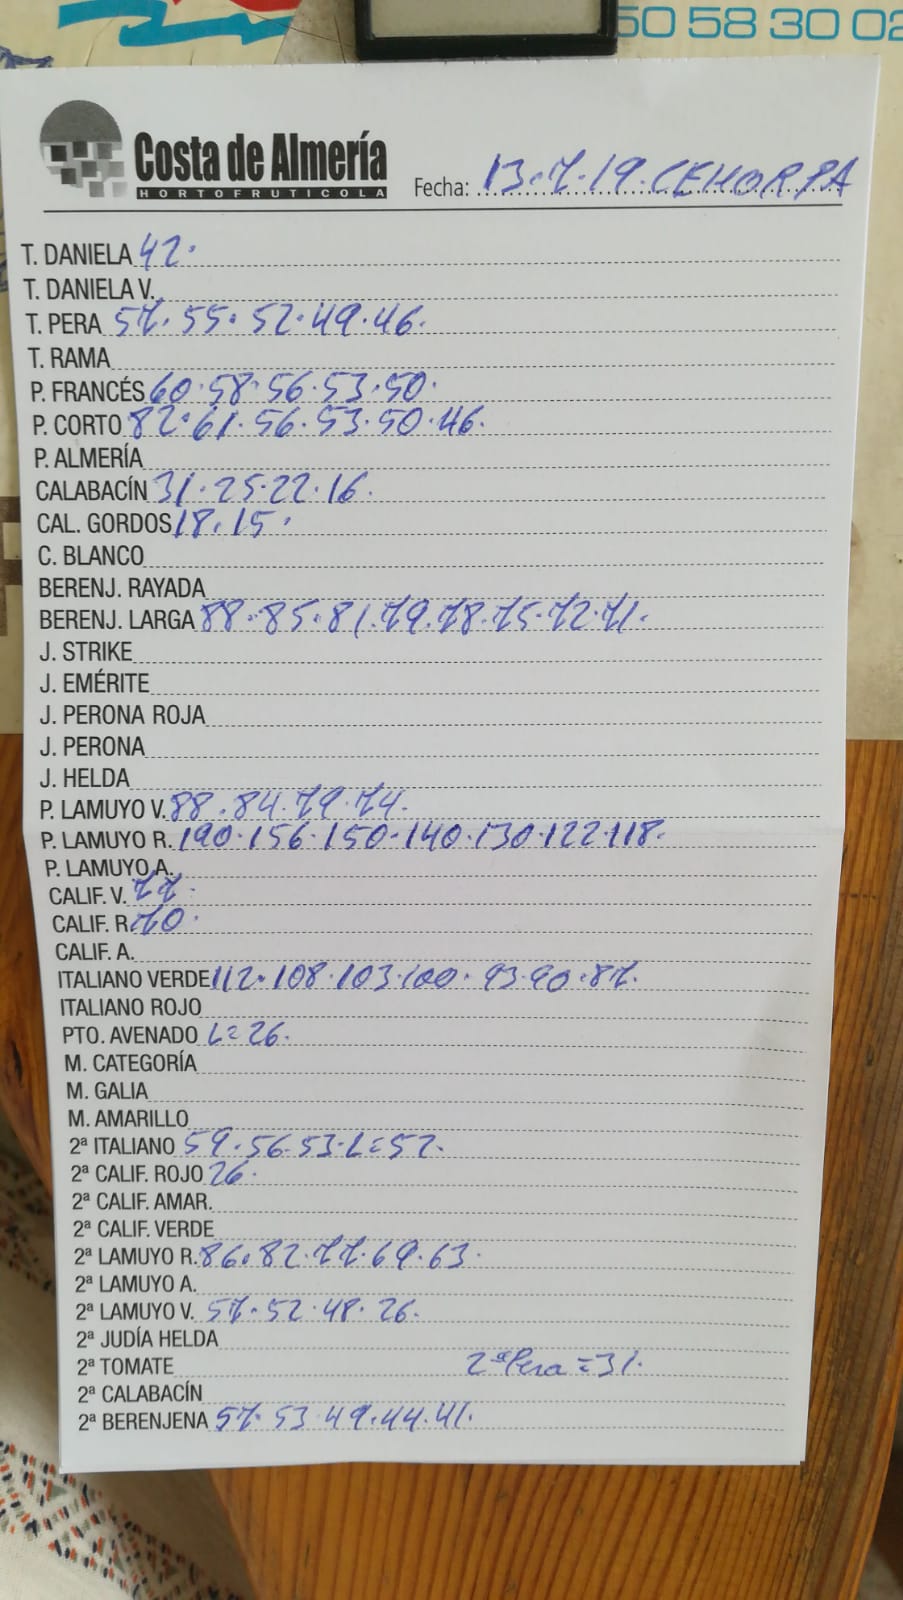 50 58 30 02
Costa de Almería
HORTOFRUTICOLA
Fecha: 13.7.19.CEHORPA
T. DANIELA 42.
T. DANIELA V.
T. PERA 57.55.52.49.46.
T. RAMA
P. FRANCÉS 60.58.56.53.50.
P. CORTO 82.61.56.53.50.46.
P. ALMERÍA
CALABACÍN 31.25.22.16.
CAL. GORDOS 18.15.
C. BLANCO
BERENJ. RAYADA
BERENJ. LARGA 88.85.81.79.78.75.72.71.
J. STRIKE
J. EMÉRITE
J. PERONA ROJA
J. PERONA
J. HELDA
P. LAMUYO V. 88.84.79.74.
P. LAMUYO R. 190.156.150.140.130.122.118.
P. LAMUYO A.
CALIF. V. 77.
CALIF. R. 70.
CALIF. A.
ITALIANO VERDE 112.108.103.100.93.90.87.
ITALIANO ROJO
PTO. AVENADO L=26.
M. CATEGORÍA
M. GALIA
M. AMARILLO
2ª ITALIANO 59.56.53.L=52.
2ª CALIF. ROJO 26.
2ª CALIF. AMAR.
2ª CALIF. VERDE
2ª LAMUYO R. 86.82.77.69.63.
2ª LAMUYO A.
2ª LAMUYO V. 57.52.48.26.
2ª JUDÍA HELDA
2ª TOMATE 2ª Pera=31.
2ª CALABACÍN
2ª BERENJENA 57.53.49.44.41.